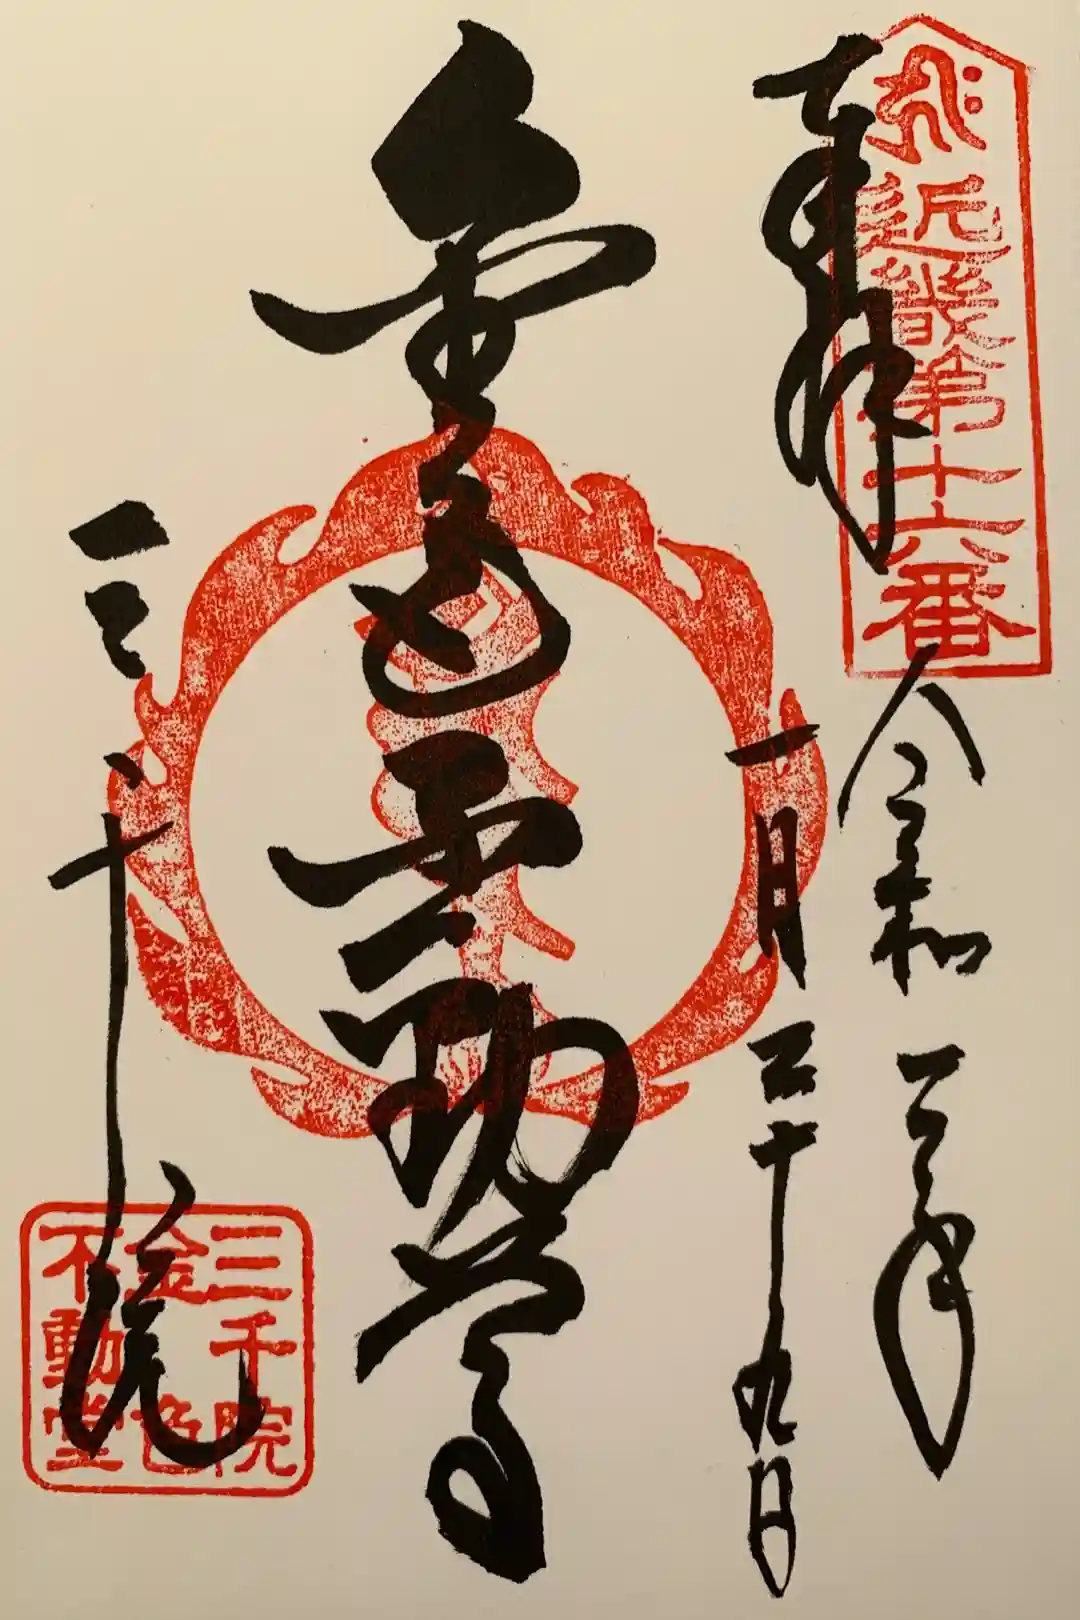 奉拝
近畿第三十六番
令和三年
一月二十九日
金色不動尊
三千院
三千院
金色
不動堂